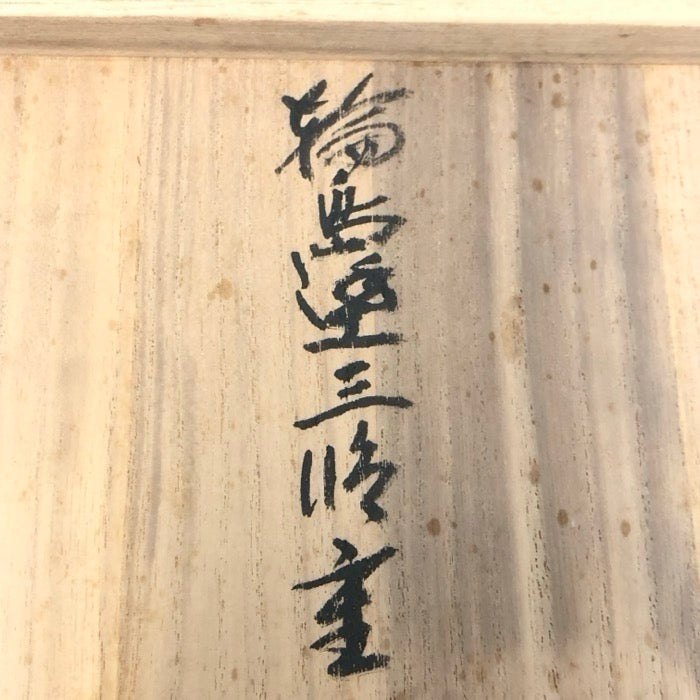 輪島塗三段重